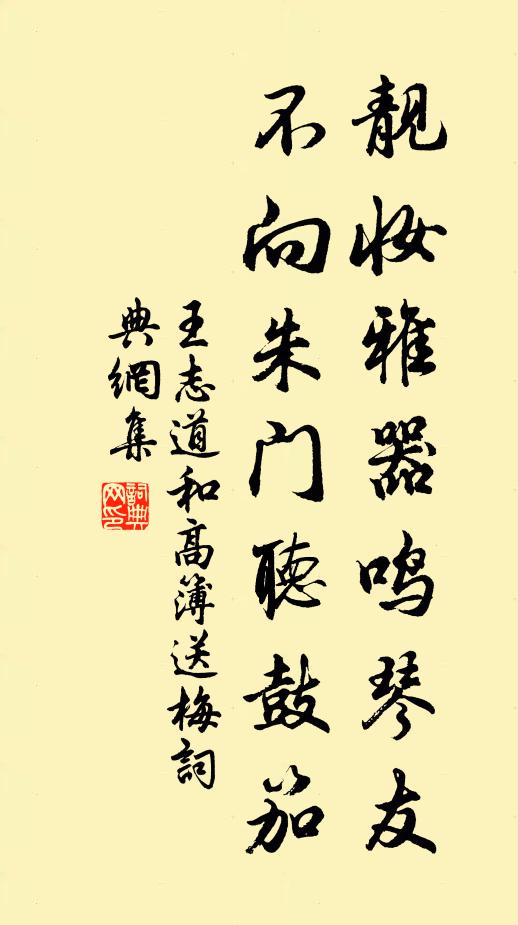 靓妆雅器鸣琴友
不向朱门聽鼓笳
王志道和高簿送梅詞
典網集
詞典
网印